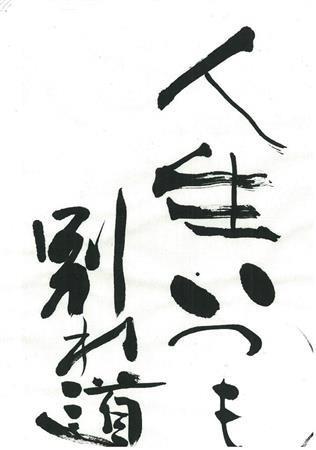 人生いつも
別れ道